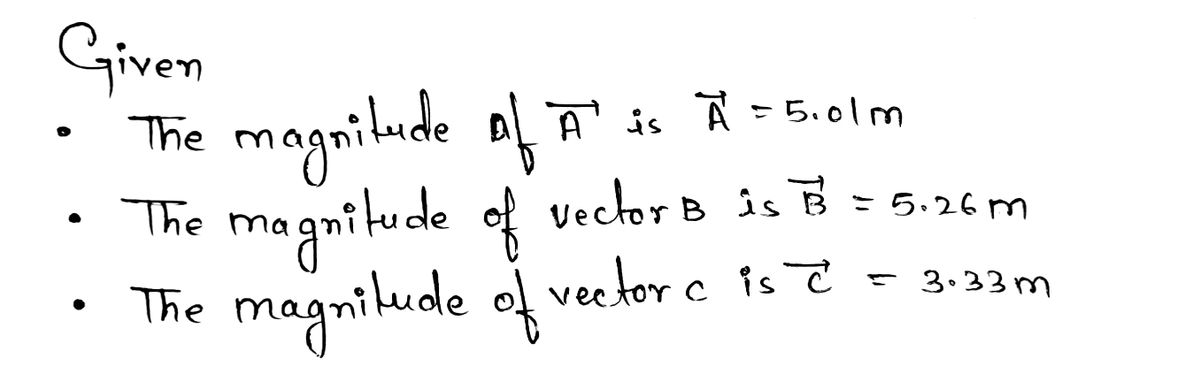 Given
• The magnitude of A⃗ is A⃗ = 5.01m
• The magnitude of vector B is B⃗ = 5.26m
• The magnitude of vector c is c⃗ = 3.33m